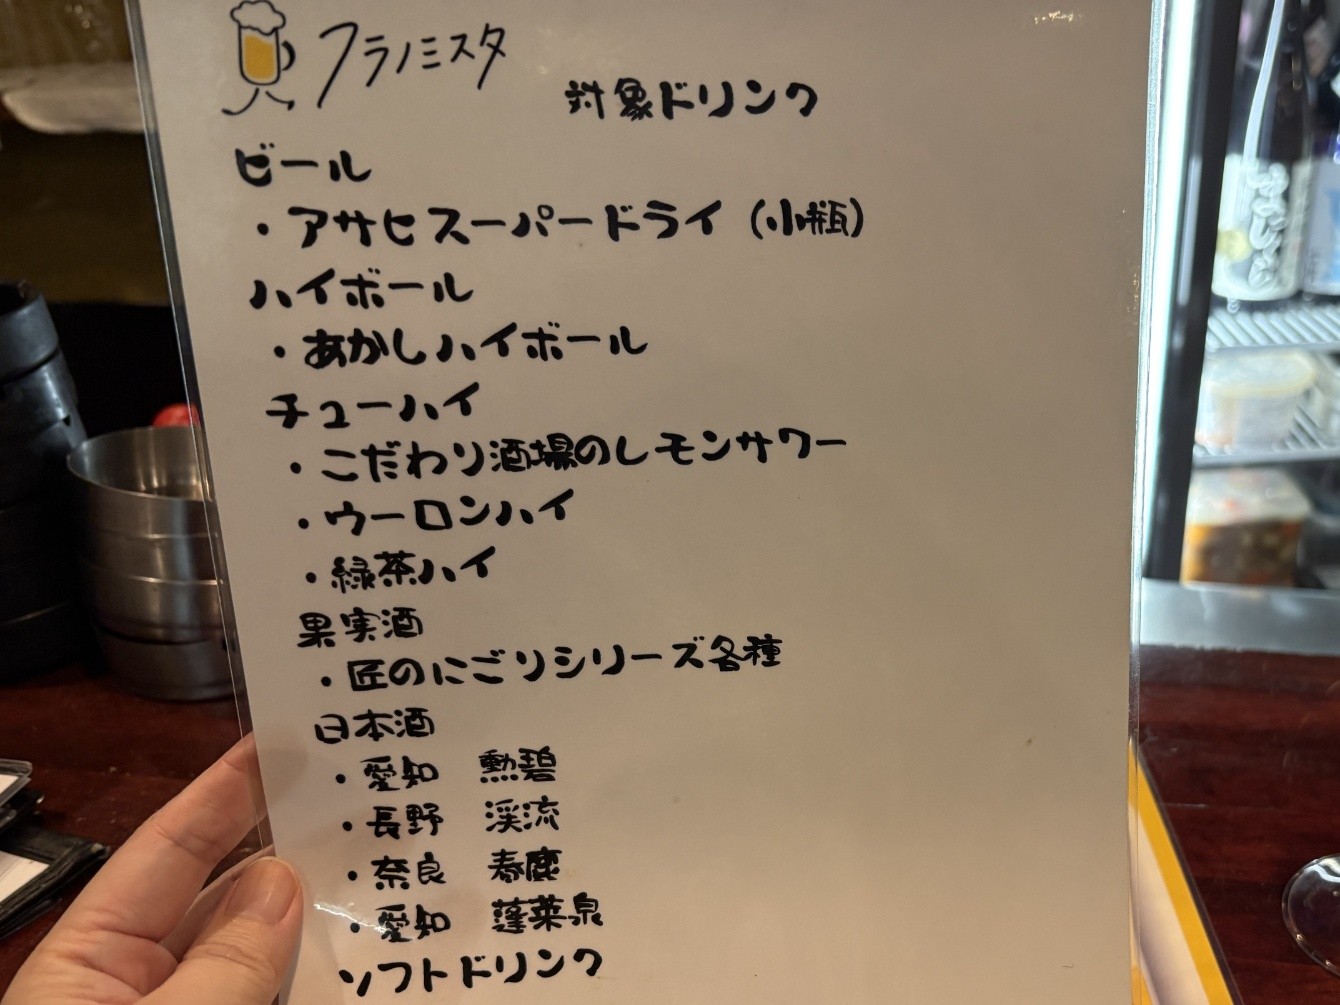 フラノミスタ
対象ドリンク
ビール
・アサヒスーパードライ（小瓶）
ハイボール
・あかしハイボール
チューハイ
・こだわり酒場のレモンサワー
・ウーロンハイ
・緑茶ハイ
果実酒
・匠のにごりシリーズ各種
日本酒
・愛知 勲碧
・長野 渓流
・奈良 春鹿
・愛知 蓬莱泉
ソフトドリンク